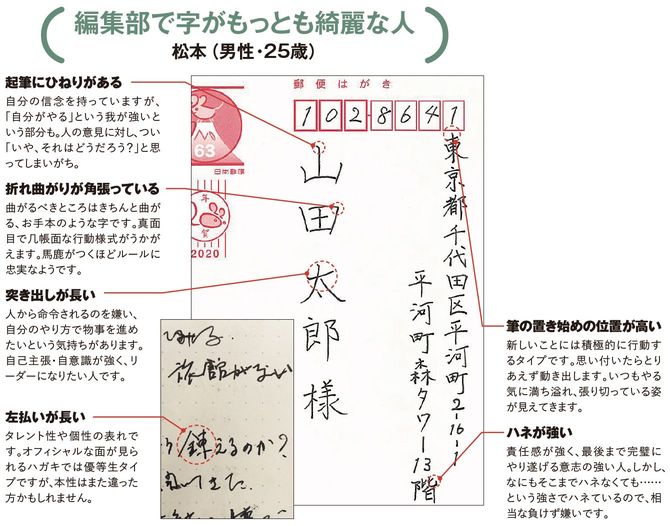 編集部で字がもっとも綺麗な人
松本（男性・25歳）
起筆にひねりがある
自分の信念を持っていますが、
「自分がやる」という我が強いと
いう部分も。人の意見に対し、つい
「いや、それはどうだろう？」と思
ってしまいがち。
折れ曲がりが角張っている
曲がるべきところはきちんと曲が
る、お手本のような字です。真面
目で几帳面な行動様式がうかが
えます。馬鹿がつくほどルールに
忠実なようです。
突き出しが長い
人から命令されるのを嫌い、
自分のやり方で物事を進め
たいという気持ちがあります。
自己主張・自意識が強く、リ
ーダーになりたい人です。
左払いが長い
タレント性や個性の表れで
す。オフィシャルな面が見ら
れるハガキでは優等生タイ
プですが、本性はまた違った
方かもしれません。
郵便はがき
102-8641
63
日本郵便
年
賀
2020
東京都千代田区平河町2-16-1
平河町森タワー13階
山田太郎様
旅館がない
錬えるのか?
筆の置き始めの位置が高い
新しいことには積極的に行動す
るタイプです。思い付いたらとり
あえず動き出します。いつもやる
気に満ち溢れ、張り切っている姿
が見えてきます。
ハネが強い
責任感が強く、最後まで完璧に
やり遂げる意志の強い人。しかし、
なにもそこまでハネなくても……
という強さでハネているので、相
当な負けず嫌いです。